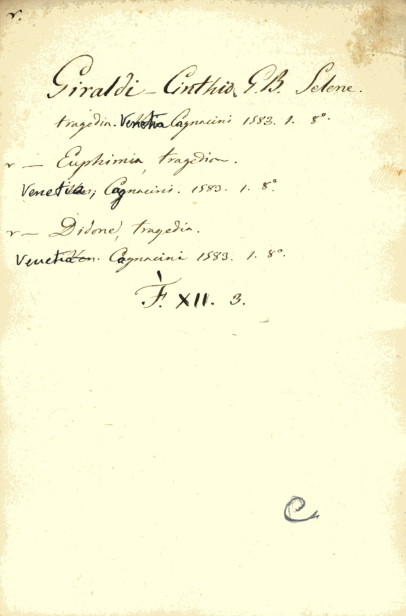 r.
Giraldi - Cinthio, G.B. Selene.
tragedia. Venetia Cagnacini 1583. 1. 8°.
r — Euphimia, tragedia.
Venetia, Cagnacini. 1583. 1. 8°.
r — Didone, tragedia.
Venetia Cagnacini 1583. 1. 8°.
F. XII. 3.
C